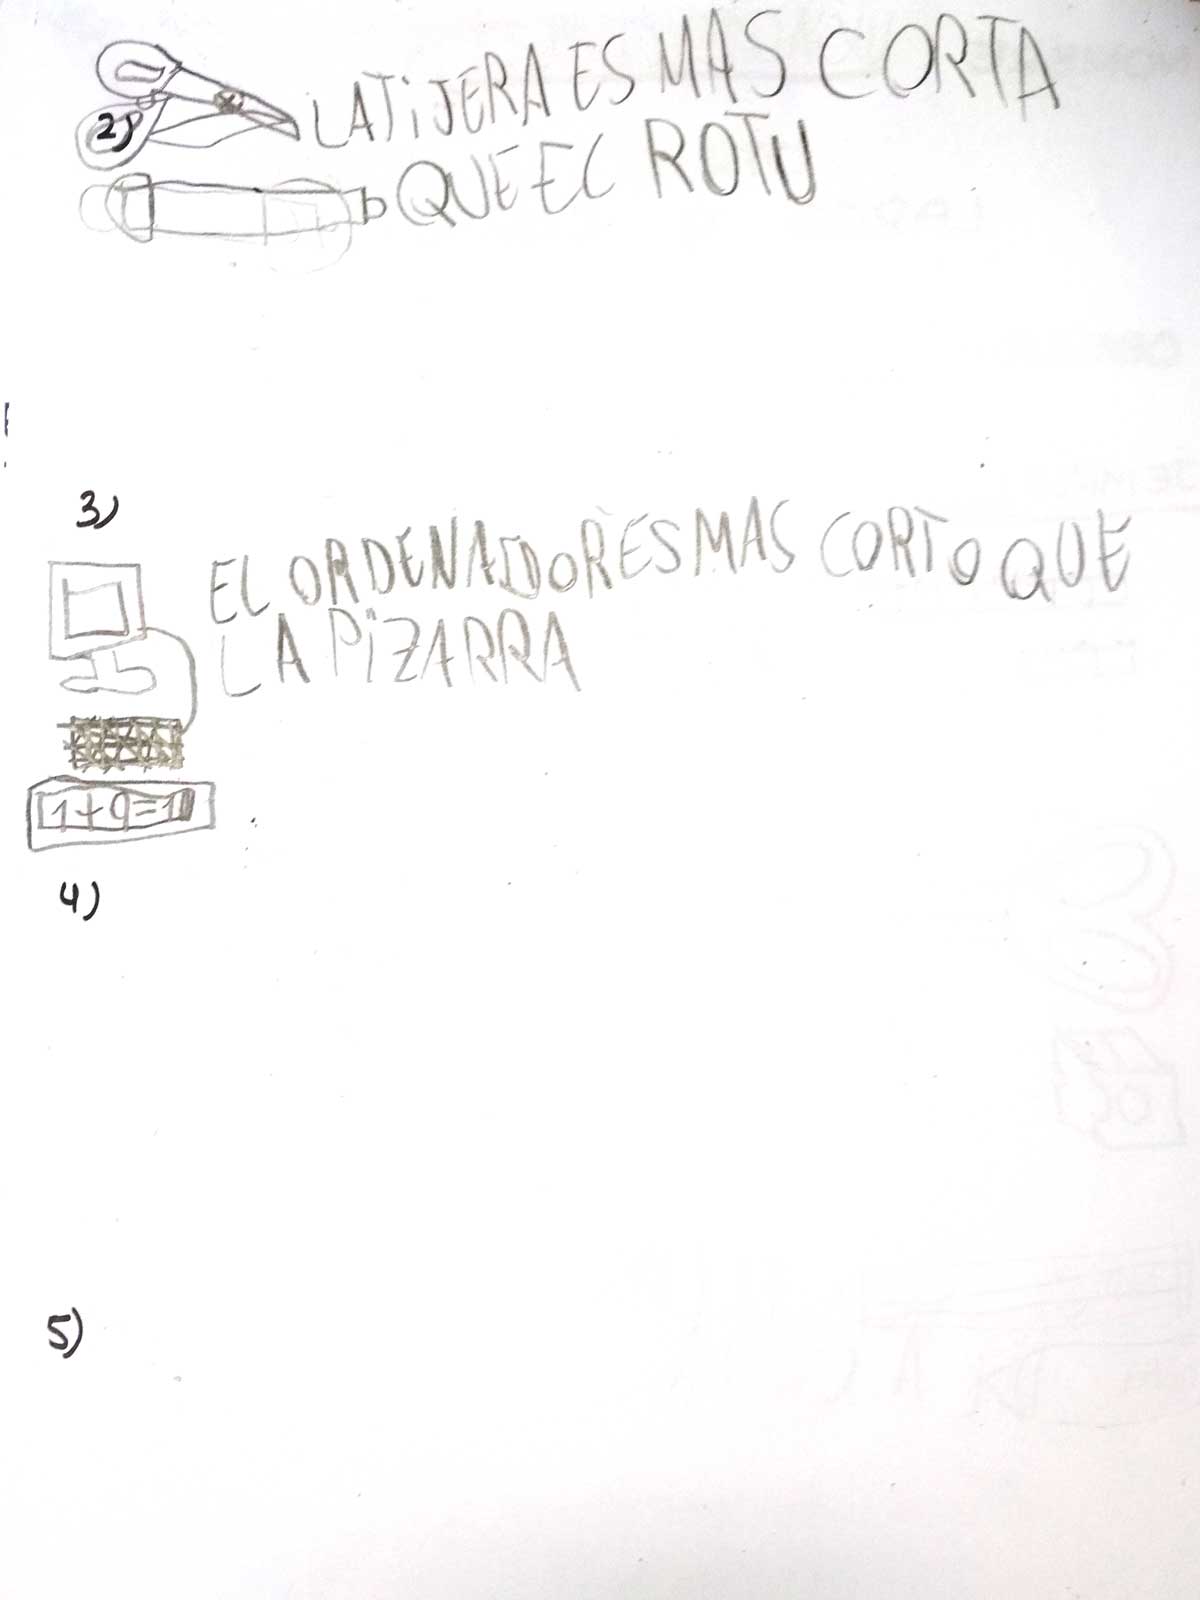 2)
LA TiJERA ES MAS CORTA
QUE EL ROTU
3)
EL ORDENADOR ES MAS CORTO QUE
LA PiZARRA
1+9=10
4)
5)